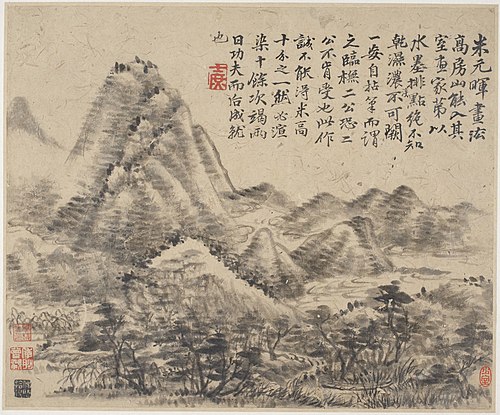 米元暉畫法
高房山能入其
室畫家第以
水墨排點絶不知
乾濕濃不可闕
一妄自拈筆而謂
之臨橅二公恐二
公不肯受也此作
誠不能得米高
十分之一然必渲
染十餘次竭兩
日功夫而后成就
也